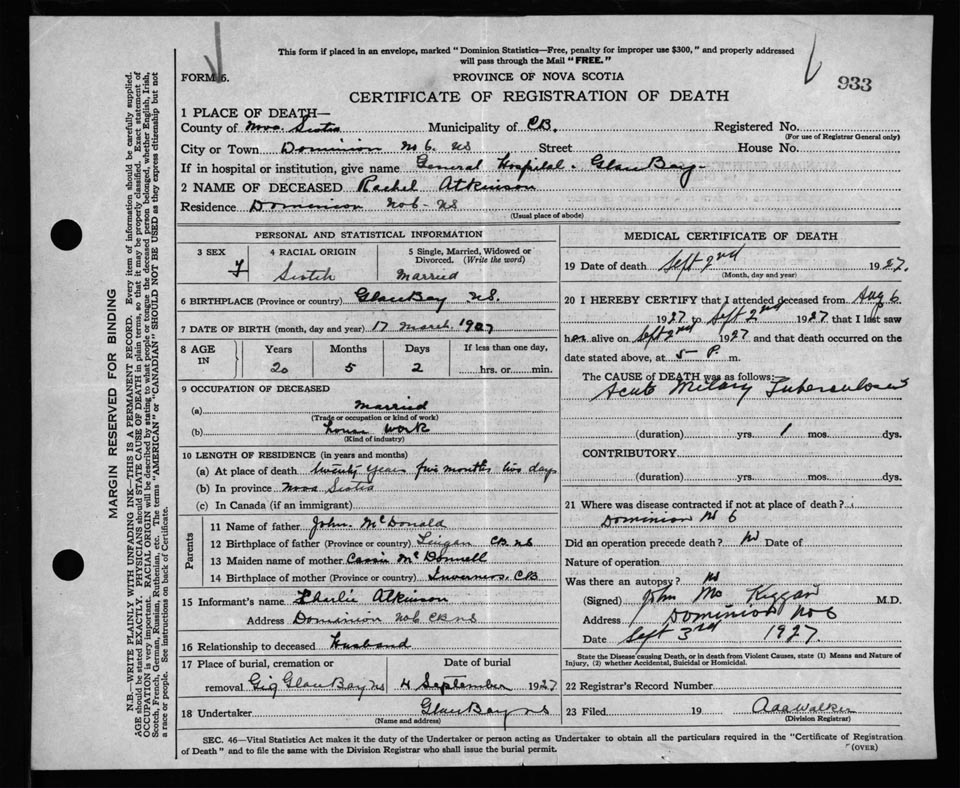 This form if placed in an envelope, marked "Dominion Statistics—Free, penalty for improper use $300," and properly addressed
will pass through the Mail "FREE."
FORM 6.
PROVINCE OF NOVA SCOTIA
933
CERTIFICATE OF REGISTRATION OF DEATH
1 PLACE OF DEATH—
County of Nova Scotia Municipality of CB. Registered No.
(For use of Registrar General only)
City or Town Dominion No 6. NS Street House No.
If in hospital or institution, give name General Hospital. Glace Bay
2 NAME OF DECEASED Rachel Atkinson
Residence Dominion No 6 - NS
(Usual place of abode)
PERSONAL AND STATISTICAL INFORMATION
3 SEX 4 RACIAL ORIGIN 5 Single, Married, Widowed or
Divorced. (Write the word)
F Scotch Married
6 BIRTHPLACE (Province or country) Glace Bay NS.
7 DATE OF BIRTH (month, day and year) 17 March 1907
8 AGE IN Years Months Days If less than one day,
20 5 2 hrs. or min.
9 OCCUPATION OF DECEASED
(a) Married
(Trade or occupation or kind of work)
(b) house work
(Kind of industry)
10 LENGTH OF RESIDENCE (in years and months)
(a) At place of death twenty years five months two days
(b) In province Nova Scotia
(c) In Canada (if an immigrant)
Parents
11 Name of father John. McDonald
12 Birthplace of father (Province or country) Lingan CB NS
13 Maiden name of mother Cassie McDonnell
14 Birthplace of mother (Province or country) Inverness. CB
15 Informant's name Charlie Atkinson
Address Dominion No 6 CB NS
16 Relationship to deceased Husband
17 Place of burial, cremation or Date of burial
removal Glace Bay NS 4 September 1927
18 Undertaker Glace Bay NS
(Name and address)
MEDICAL CERTIFICATE OF DEATH
19 Date of death Sept 2nd 1927.
(Month, day and year)
20 I HEREBY CERTIFY that I attended deceased from Aug 6
1927 to Sept 2nd 1927 that I last saw
her alive on Sept 2nd 1927 and that death occurred on the
date stated above, at 5 P. m.
The CAUSE OF DEATH was as follows:
Acute Miliary Tuberculosis
(duration) yrs. 1 mos. dys.
CONTRIBUTORY
(duration) yrs. mos. dys.
21 Where was disease contracted if not at place of death?
Dominion No 6
Did an operation precede death? No Date of
Nature of operation
Was there an autopsy? No
(Signed) John M.D.
Address Dominion No 6
Date Sept 3rd 1927
State the Disease causing Death, or in death from Violent Causes, state (1) Means and Nature of
Injury, (2) whether Accidental, Suicidal or Homicidal.
22 Registrar's Record Number
23 Filed 19 Walker
(Division Registrar)
SEC. 46—Vital Statistics Act makes it the duty of the Undertaker or person acting as Undertaker to obtain all the particulars required in the "Certificate of Registration
of Death" and to file the same with the Division Registrar who shall issue the burial permit.
(OVER)
MARGIN RESERVED FOR BINDING
N.B.—WRITE PLAINLY WITH UNFADING INK—THIS IS A PERMANENT RECORD. Every item of information should be carefully supplied.
AGE should be stated EXACTLY. PHYSICIANS should STATE CAUSE OF DEATH in plain terms, so that it may be properly classified. Exact statement of
OCCUPATION is very important. RACIAL ORIGIN will be described by stating to what people or tongue the deceased person belonged, whether English, Irish,
Scotch, French, German, Russian, Ruthenian, etc. The terms "AMERICAN" or "CANADIAN" SHOULD NOT BE USED as they express citizenship but not
a race or people. See instructions on back of Certificate.